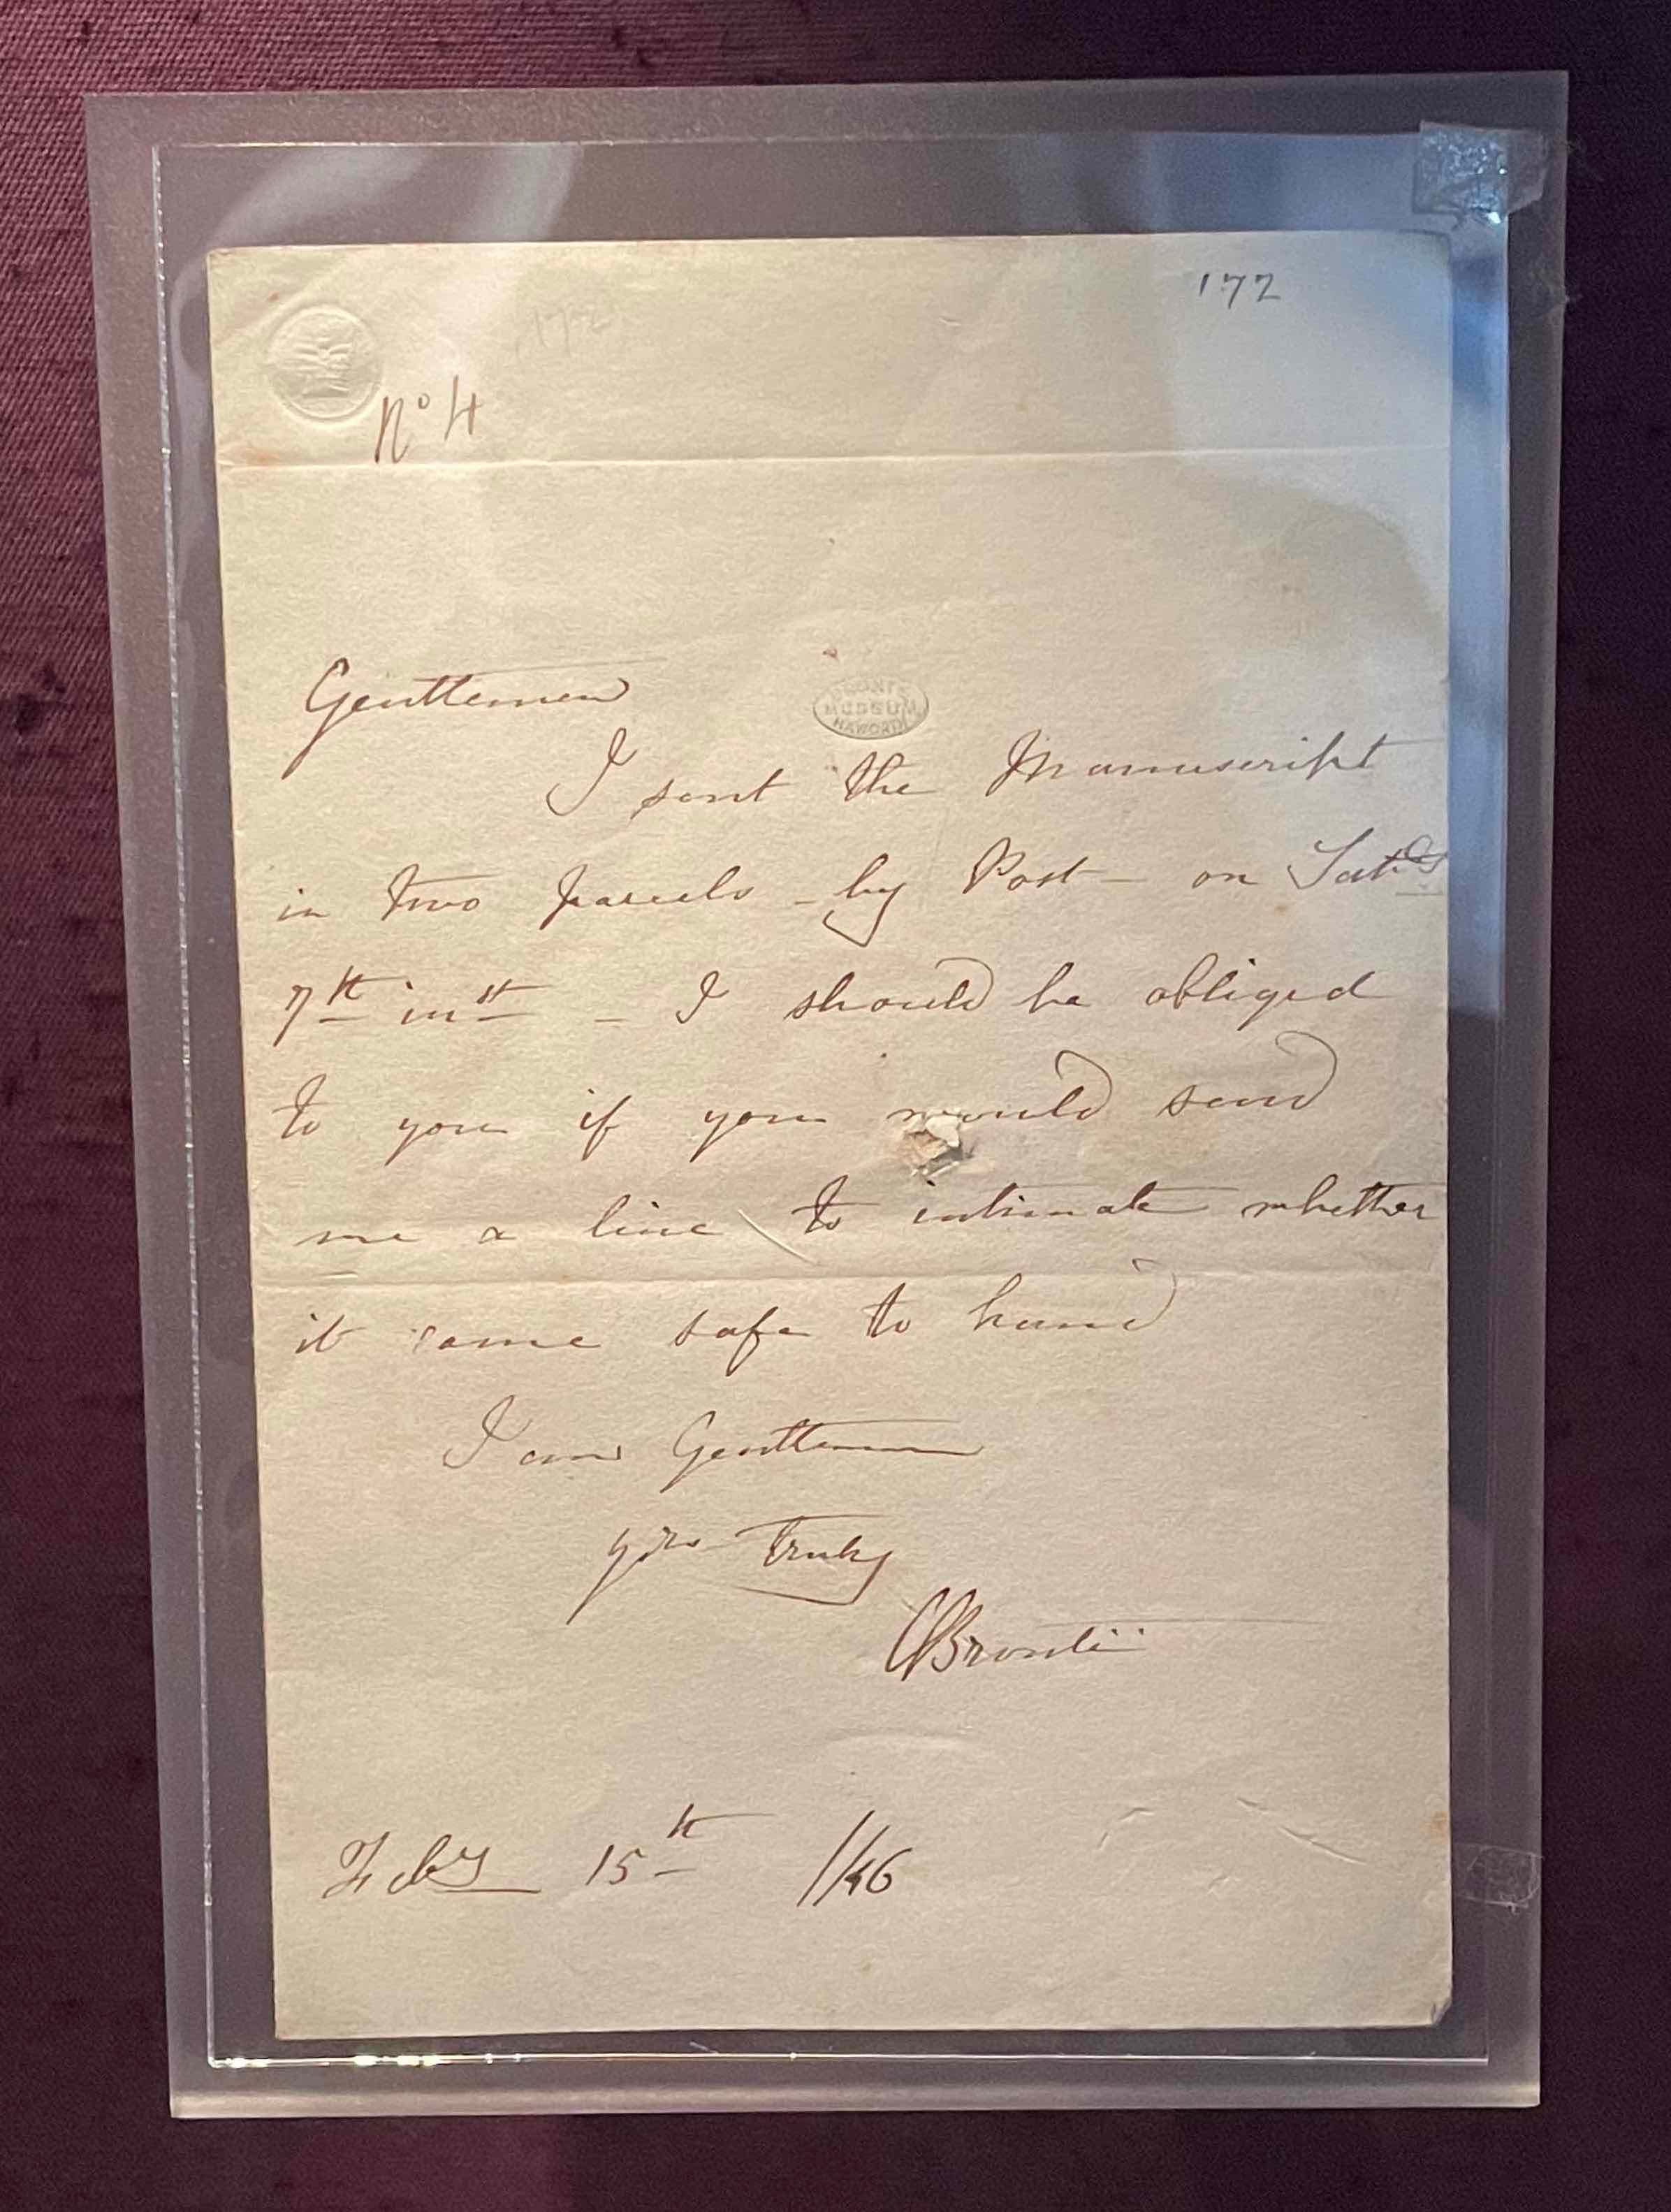 172
172
No 4
Gentlemen
BRONTË
MUSEUM
HAWORTH
I sent the Manuscript
in two parcels - by Post - on Satdy
7th inst - I should be obliged
to you if you would send
me a line to intimate whether
it came safe to hand
I am Gentlemen
yrs truly
CBrontë
Feby 15th /46